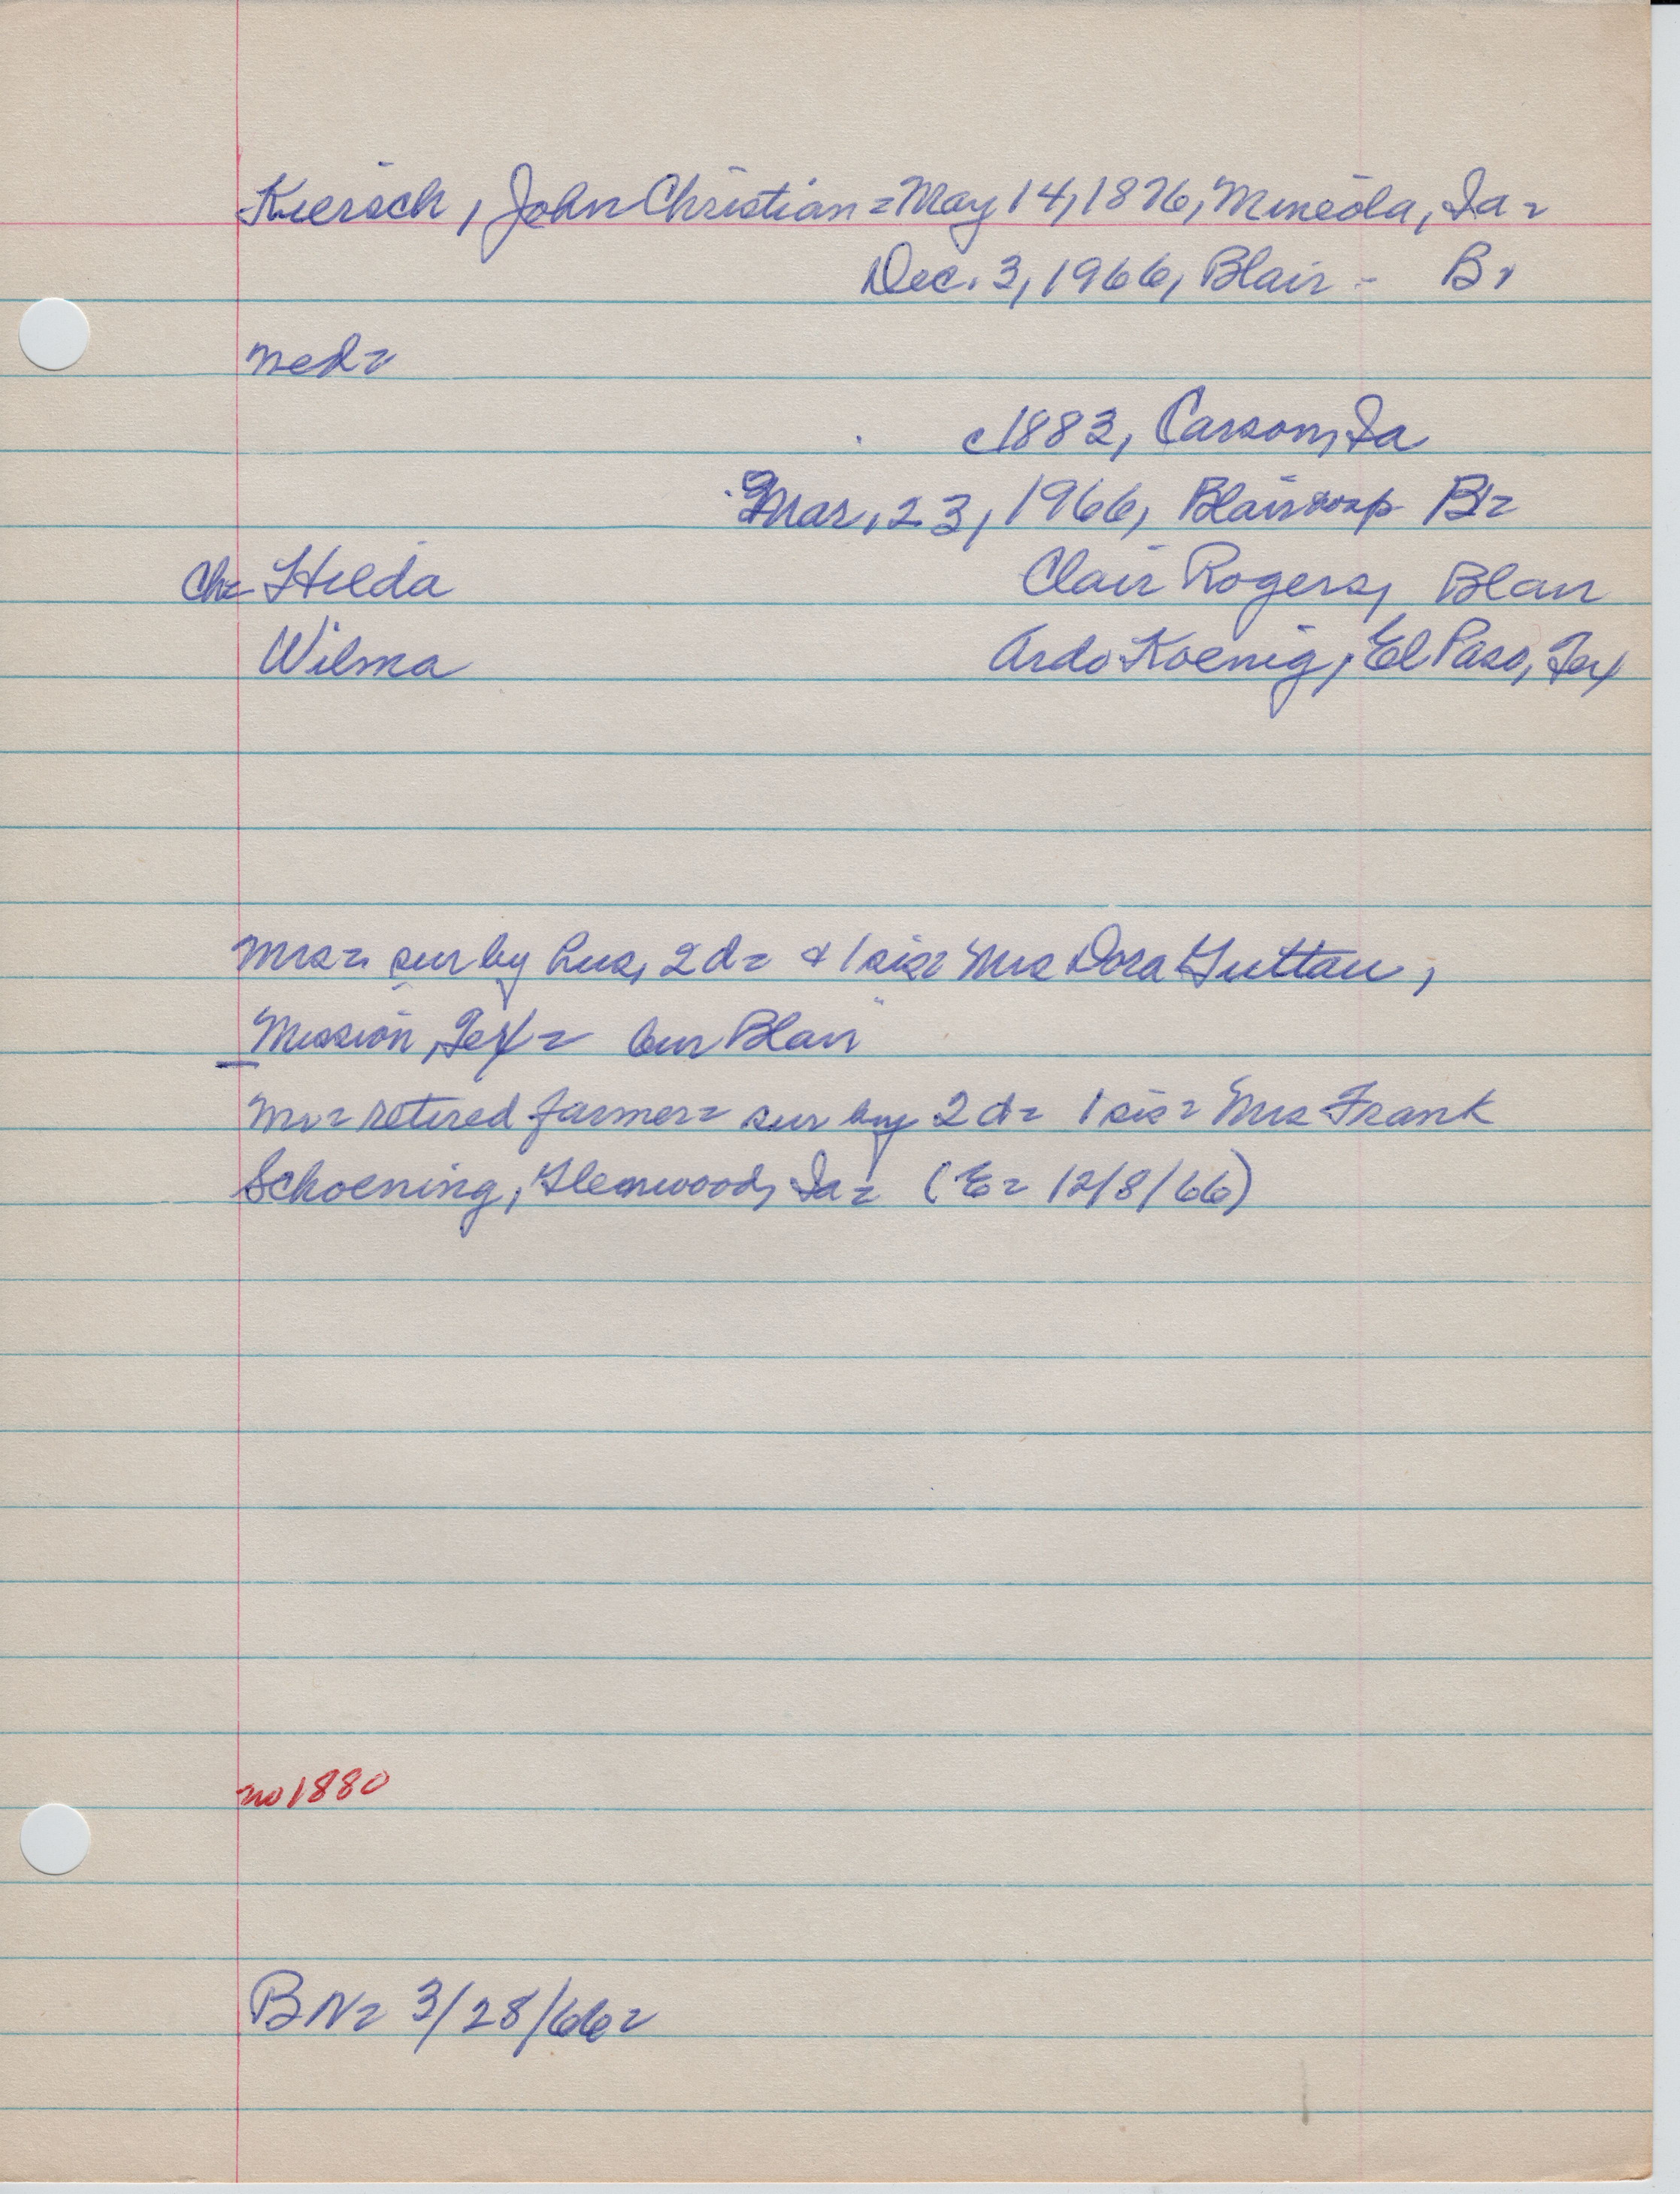 Kuersch, John Christian = May 14, 1876, Mineola, Ia =
Dec. 3, 1966, Blair - B =
ned =
c1883, Carson, Ia
Mar, 23, 1966, Blair hosp B =
Ch = Hilda Clair Rogers, Blair
Wilma Ardo Koenig, El Paso, Tex
Mrs = sur by hus, 2 d = & 1 sis = Mrs Dora Guttau,
Mission, Tex = bur Blair
Mr = retired farmer = sur by 2 d = 1 sis = Mrs Frank
Schoening, Glenwood, Ia = (E = 12/8/66)
no 1880
BN = 3/28/66 =